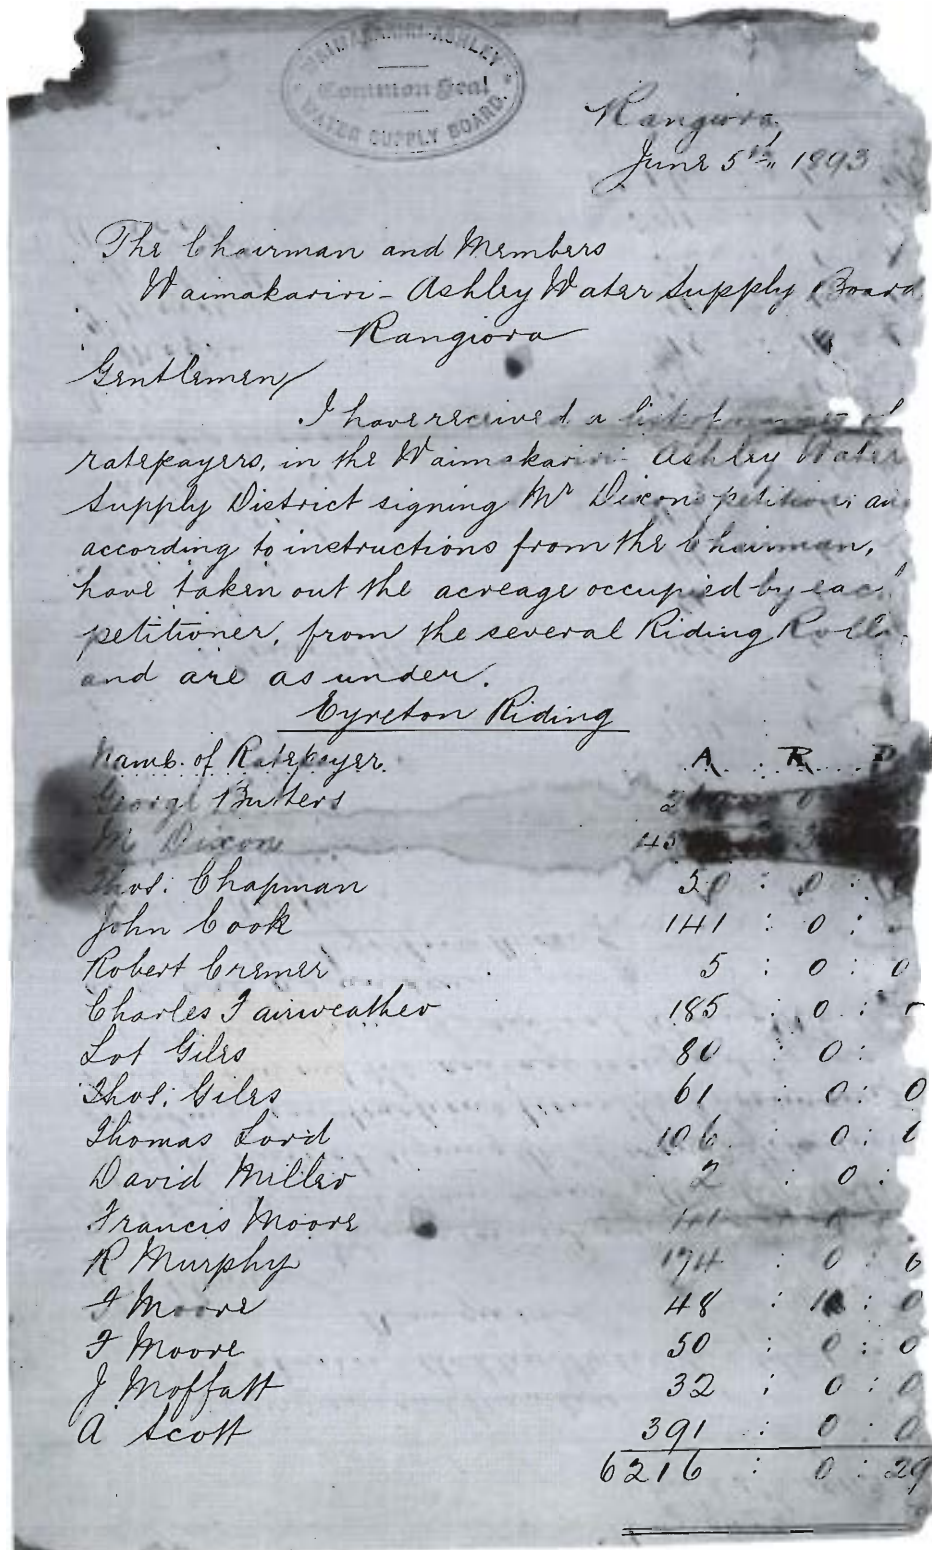 WAIMAKARIRI-ASHLEY
Common Seal
WATER SUPPLY BOARD.
Rangiora,
June 5th, 1893
The Chairman and Members
Waimakariri - Ashley Water Supply Board
Rangiora
Gentlemen/
I have received a list of names of
ratepayers, in the Waimakariri Ashley Water
Supply District signing Mr Dixons petition; an
according to instructions from the Chairman,
have taken out the acreage occupied by eac
petitioner, from the several Riding Rolls
and are as under.
Eyreton Riding
Name of Ratepayer. A R P
George Butters 0
M Dixon 45
Thos. Chapman 50 : 0 :
John Cook 141 : 0 :
Robert Cremer 5 : 0 : 0
Charles Fairweather 185 0 :
Lot Giles 80 : 0 :
Thos. Giles 61 : 0 : 0
Thomas Lord 106 : 0 :
David Miller 2 : 0 :
Francis Moore
R Murphy 174 : 0 : 6
F Moore 48 : : 0
F Moore 50 : 0 : 0
J Moffatt 32 : 0 : 0
A Scott 391 : 0 : 0
6216 : 0 : 29